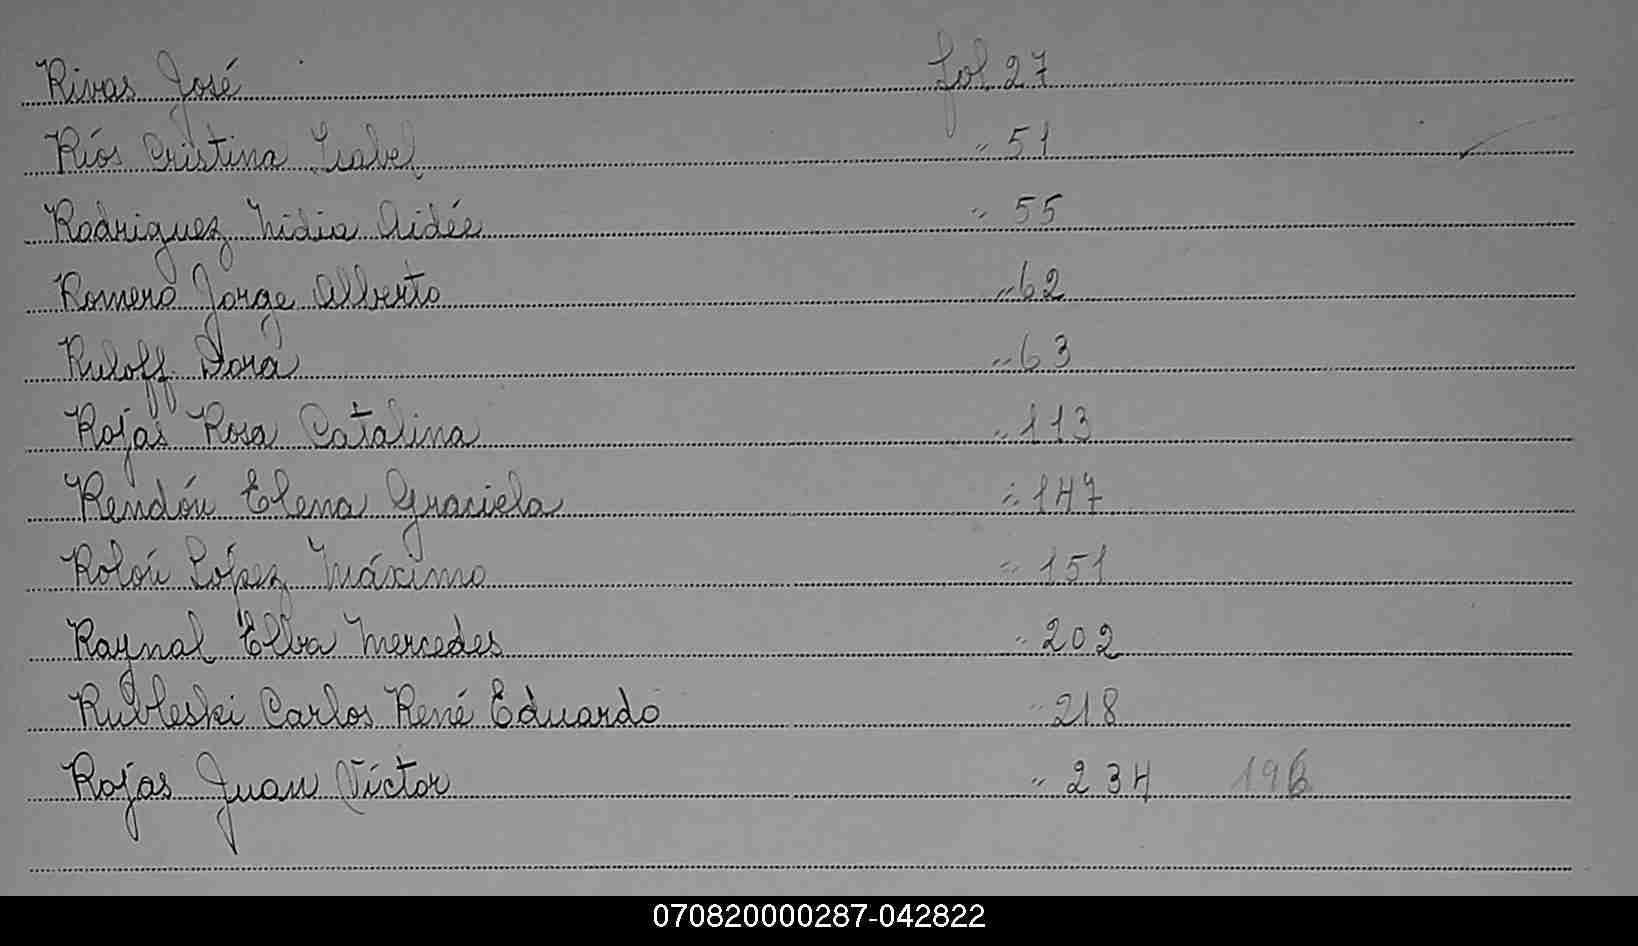 Rivas José fol. 27
Ríos Cristina Isabel " 51
Rodriguez Nidia Aidée " 55
Romero Jorge Alberto " 62
Ruloff Dora " 63
Rojas Rosa Catalina " 113
Rendón Elena Graciela " 147
Rolón López Máximo " 151
Raynal Elba Mercedes " 202
Rubleski Carlos René Eduardo " 218
Rojas Juan Víctor " 234 196
070820000287-042822